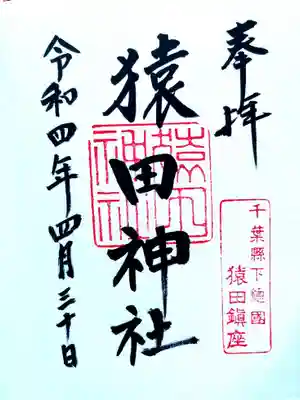 奉拝
千葉縣下總國
猿田鎮座
猿田神社
猿田神社
令和四年四月三十日